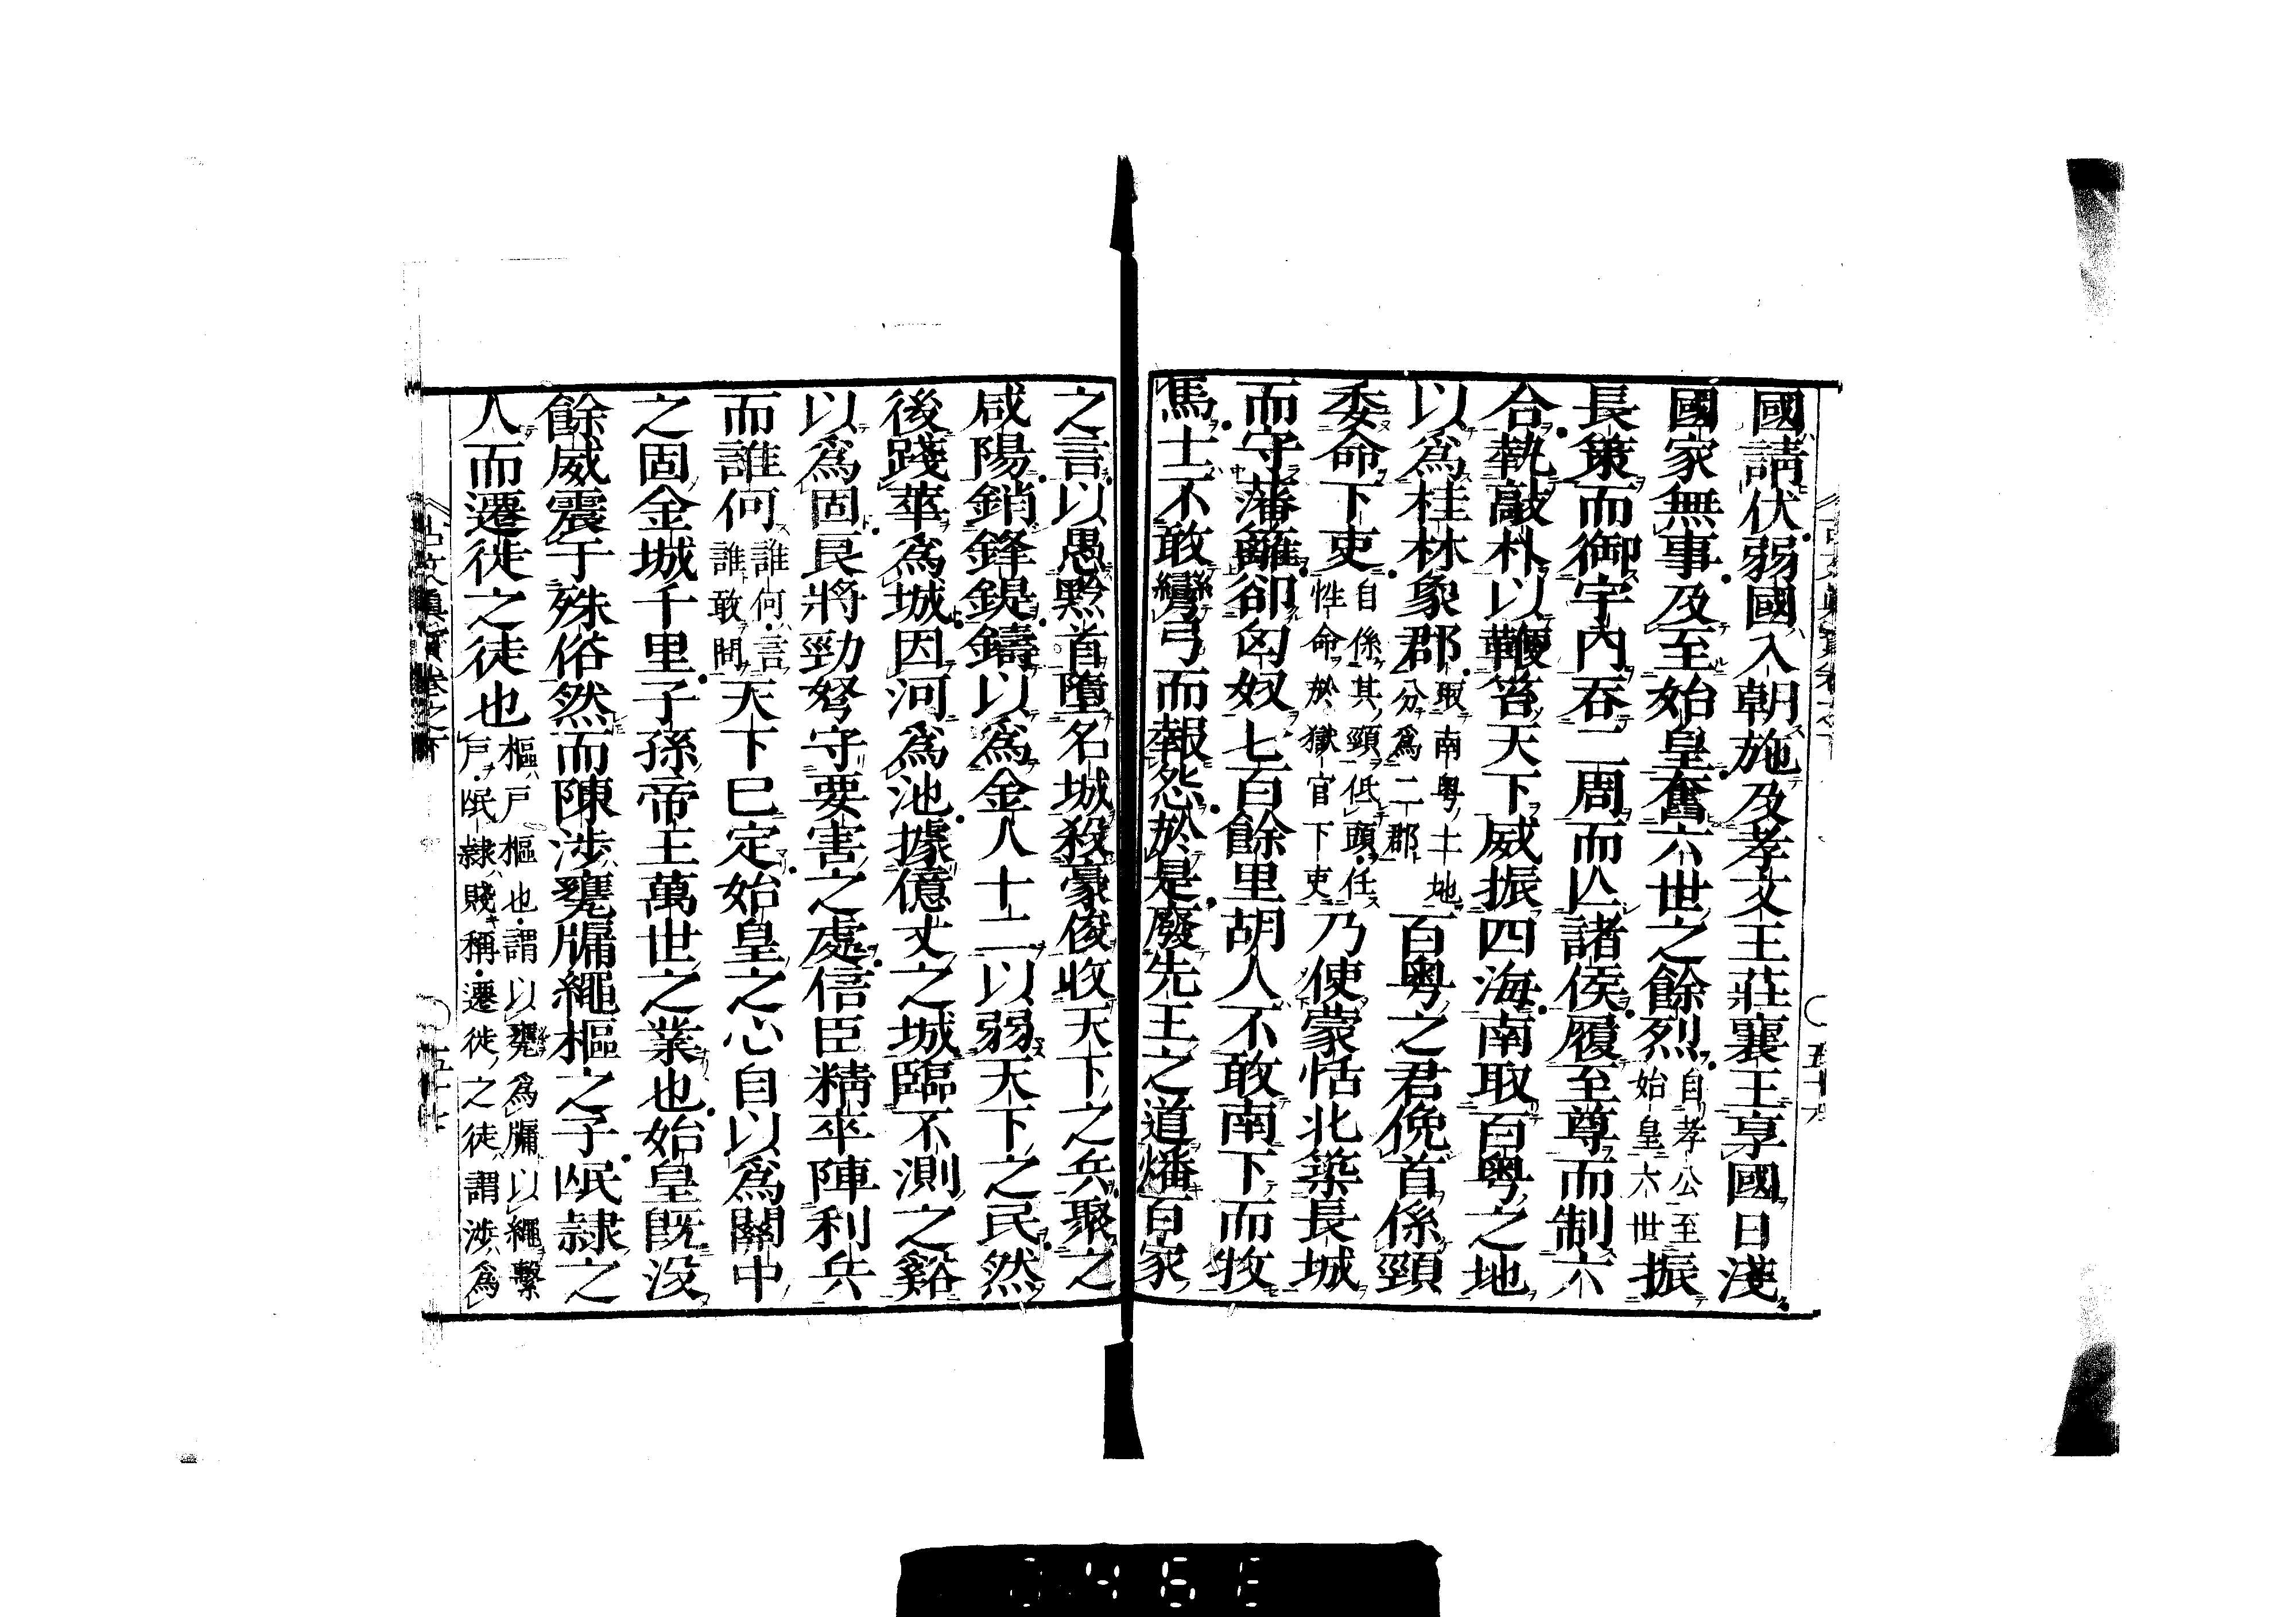 國請伏弱國入朝施及孝文王莊襄王享國日淺
國家無事及至始皇奮六世之餘烈自孝公至始皇六世振
長策而御宇內吞二周而亾諸侯履至尊而制六
合執敲朴以鞭笞天下威振四海南取百粤之地
以爲桂林象郡取南粤土地分爲二郡百粤之君俛首係頸
委命下吏自係其頸低頭任性命於獄官下吏乃使蒙恬北築長城
而守藩籬卻匈奴七百餘里胡人不敢南下而牧
馬士不敢彎弓而報怨於是廢先王之道燔百家
之言以愚黔首墮名城殺豪俊收天下之兵聚之
咸陽銷鋒鍉鑄以爲金人十二以弱天下之民然
後踐華爲城因河爲池據億丈之城臨不測之谿
以爲固良將勁弩守要害之處信臣精卒陳利兵
而誰何誰何言誰敢問天下已定始皇之心自以爲關中
之固金城千里子孫帝王萬世之業也始皇旣没
餘威震于殊俗然而陳涉甕牖繩樞之子甿隷之
人而遷徙之徒也樞戶樞也謂以甕爲牖以繩繫戶甿隷賤稱遷徙之徒謂涉爲
古文眞寳卷之下